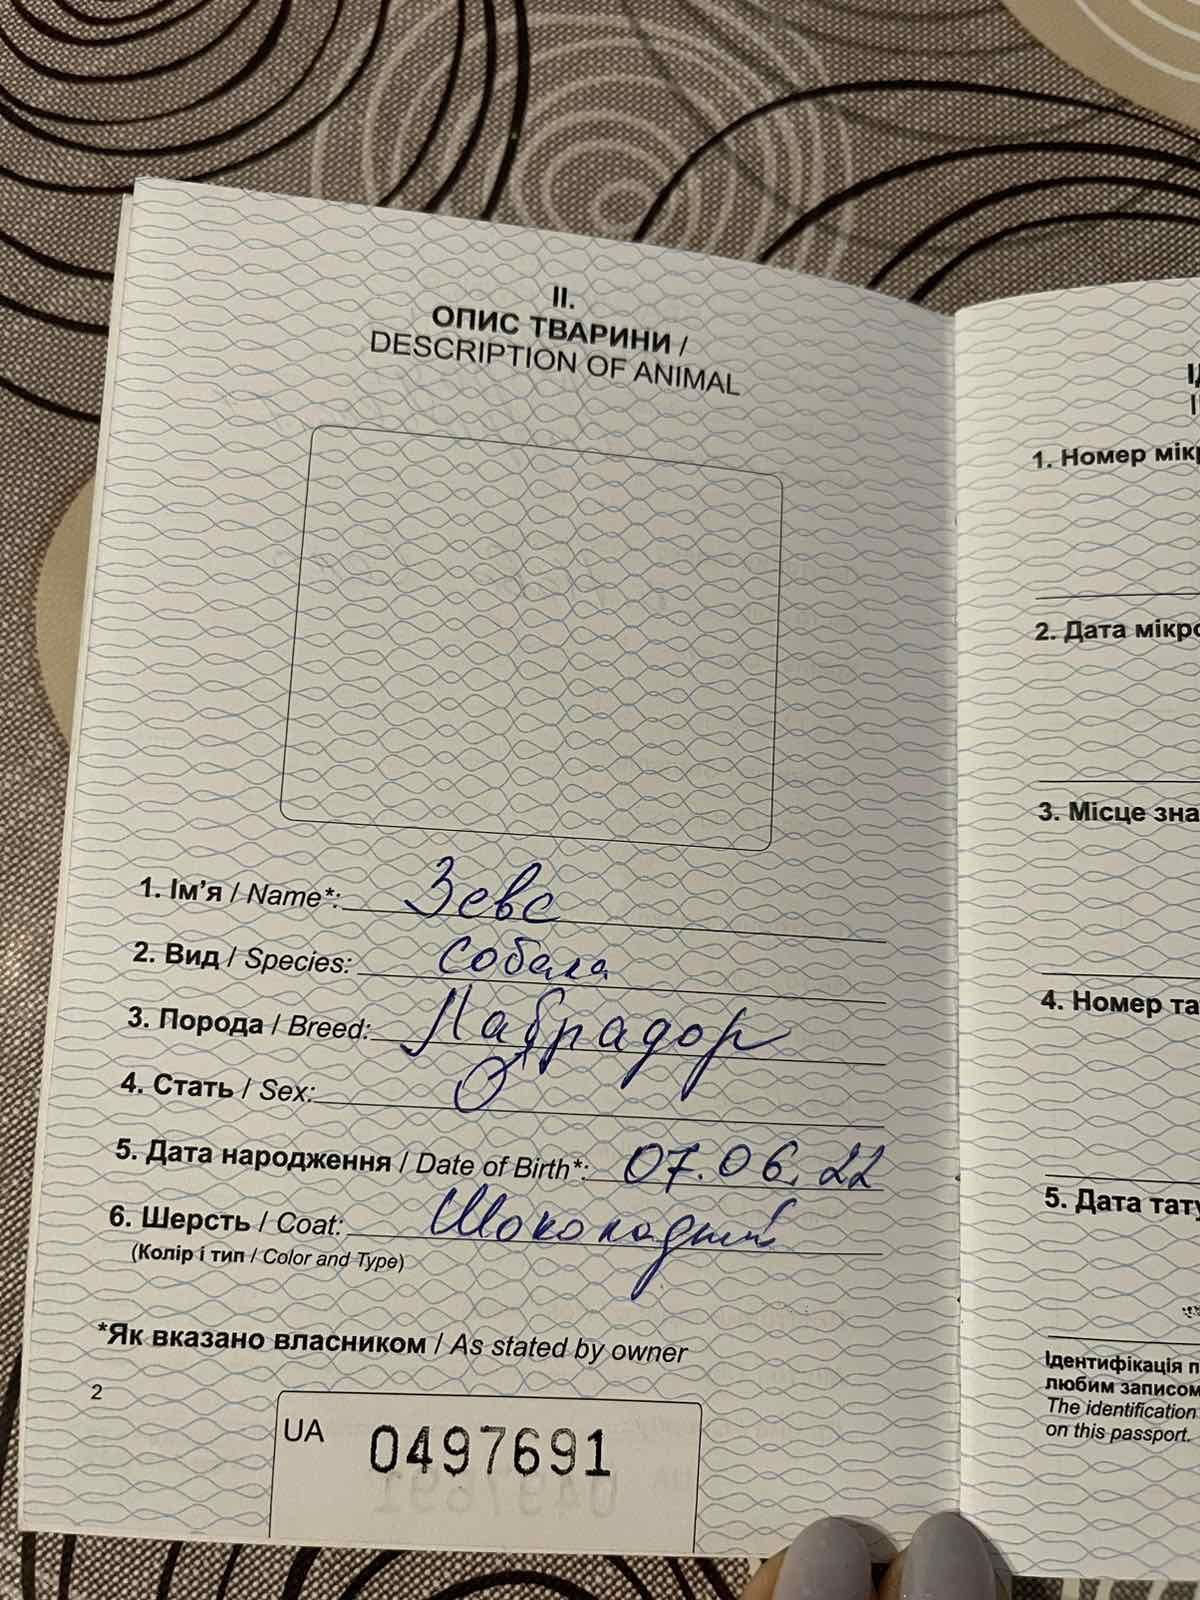 II.
ОПИС ТВАРИНИ /
DESCRIPTION OF ANIMAL
1. Ім'я / Name*: Зевс
2. Вид / Species: собака
3. Порода / Breed: Лабрадор
4. Стать / Sex: ♂
5. Дата народження / Date of Birth*: 07.06.22
6. Шерсть / Coat: Шоколадний
(Колір і тип / Color and Type)
*Як вказано власником / As stated by owner
2
UA 0497691
1. Номер мікр
2. Дата мікро
3. Місце зна
4. Номер та
5. Дата тату
Ідентифікація п
любим записом
The identification
on this passport.